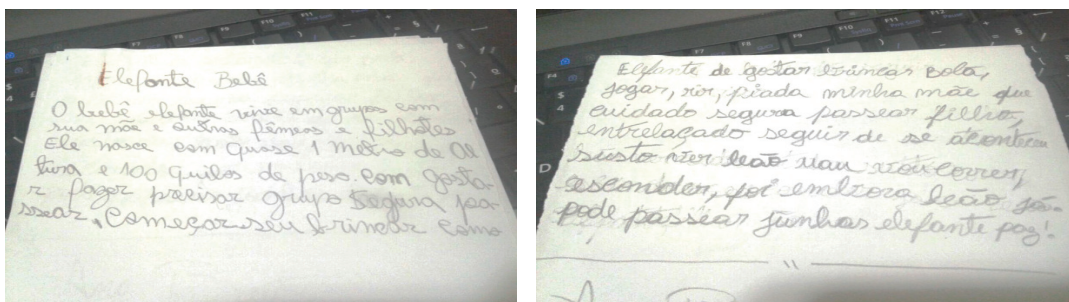 Elefante Bebê
O bebê elefante vive em grupos com
sua mãe e outras fêmeas e filhotes
Ele nasce com quase 1 metro de al
tura e 100 quilos de peso. com gosta-
r fazer precisar grupo segura pa-
ssear, começar seu brincar como
Elefante de gostar brincar bola,
jogar, rir, piada minha mãe que
cuidado segura passear filho,
entrelaçado seguir de se aconteceu
susto ver leão vau correr,
esconder, foi embora leão
pode passear junhas elefante paz!